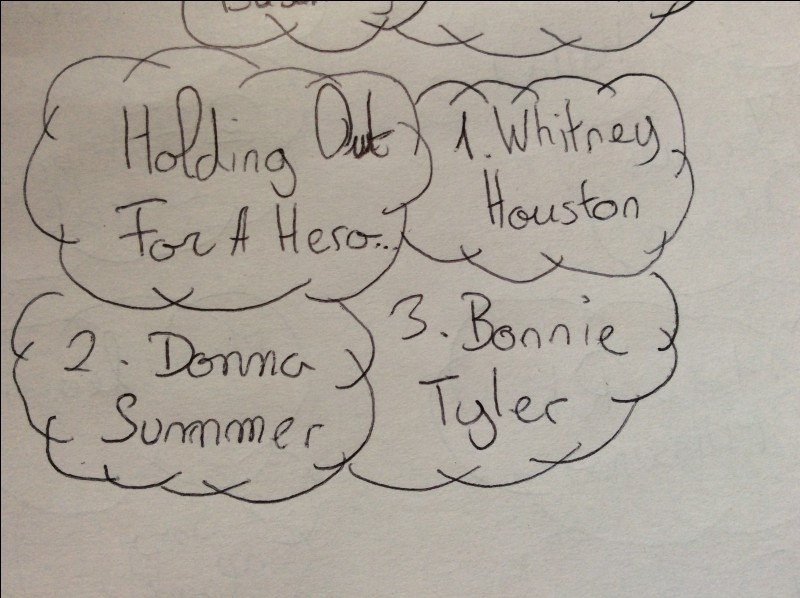 Holding Out
For A Hero...
1. Whitney
Houston
2. Donna
Summer
3. Bonnie
Tyler